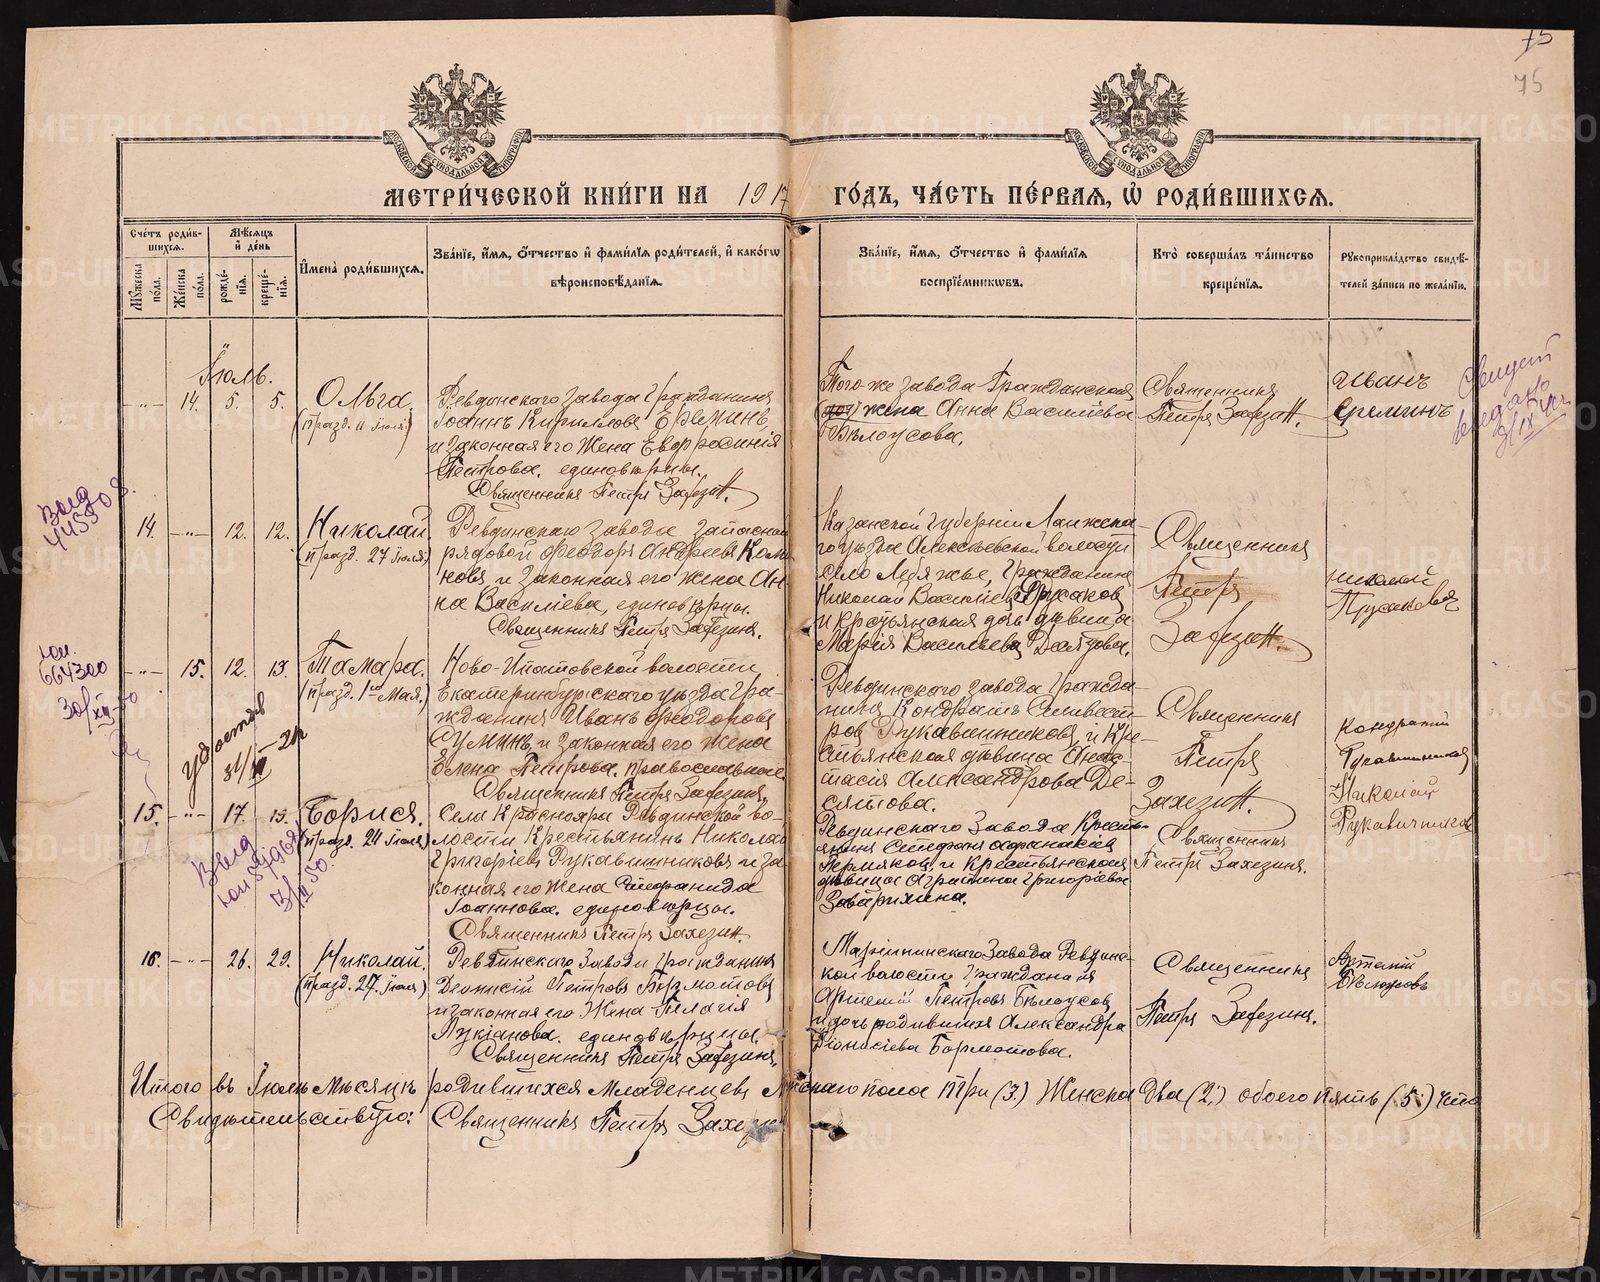 75
75
МЕТРИ́ЧЕСКОЙ КНИ́ГИ НА 1917 ГО́ДЪ, ЧА́СТЬ ПЕ́РВАЯ, Ѽ РОДИ́ВШИХСЯ.
Сче́тъ роди́в-
шихся.
Мѣ́сяцъ
и́ де́нь
Му́жеска по́ла.
Же́нска по́ла.
рожде́-
нїя.
креще́-
нїя.
И҆мена̀ роди́вшихся.
Зва́нїе, и҆́мя, ѻ҆́тчество и҆ фами́лїѧ роди́телей, и҆ како́гѡ
вѣроисповѣ́данїѧ.
Зва́нїе, и҆́мя, ѻ҆́тчество и҆ фами́лїѧ
воспрїе́мникѡвъ.
Кто̀ соверша́лъ та́инство
креще́нїѧ.
Рꙋкоприкла́дство свидѣ́-
телей за́писи по жела́нїю.
Іюль.
14. 5. 5. Ольга
(празд. 11 Іюля)
Ревдинскаго завода Гражданинъ
Іоаннъ Кирилловъ Ереминъ,
и законная его жена Евфросинія
Петрова, единовѣрцы.
Священникъ Петръ
Того же завода Гражданская
жена Анна Василіева
Бѣлоусова.
Священникъ
Петръ
Иванъ
Ереминъ
14. 12. 12. Николай.
(празд. 27 Іюля)
Ревдинскаго завода запасной
рядовой Феодоръ Андреевъ
новъ и законная его жена Ан-
на Василіева, единовѣрцы.
Священникъ Петръ
Казанской губерніи
го уѣзда Алексѣевской волости
село Лебяжье, гражданинъ
Николай Василіевъ Прусаковъ
и крестьянская дочь дѣвица
Марія Васильева
Священникъ
Петръ
Николай
Прусаковъ
15. 12. 13. Тамара.
(празд. 1го Мая.)
Ново-Ипатовской волости
Екатеринбургскаго уѣзда Гра-
жданинъ Иванъ Феодоровъ
Суминъ, и законная его жена
Елена Петрова. православные.
Священникъ Петръ
Ревдинскаго завода Гражда-
нинъ Кондратъ Силивест-
ровъ Рукавишниковъ и Кре-
стьянская дѣвица Анас-
тасія Александрова Де-
сятова.
Священникъ
Петръ
Захезин.
Кондратий
Рукавишников
15. 17. Борисъ.
(празд. 24 Іюля)
Села Краснояра Ревдинской во-
лости Крестьянинъ Николай
Григоріевъ Рукавишниковъ и за-
конная его жена Стефанида
Іоаннова. единовѣрцы.
Священникъ Петръ Захезин.
Ревдинскаго Завода Кресть-
янинъ Стефанъ Афанасіевъ
Пермяковъ и крестьянская
дѣвица Агрипина Григоріева
Заварихина.
Священникъ
Петръ Захезинъ.
Николай
Рукавичников
16. 26. 29. Николай.
(празд. 27. Іюля)
Ревдинскаго Завода гражданинъ
Деонисій Петровъ Бормотовъ
и законная его жена Пелагія
Лукіанова. единовѣрцы.
Священникъ Петръ
Маріинскаго Завода Ревдин-
кой волости гражданинъ
Артемій Петровъ Бѣлоусовъ
и дочь родившихъ Александра
Діонисіева Бормотова.
Священникъ
Петръ
Артемій
Бѣлоусовъ
Итого въ Іюлѣ мѣсяцѣ родившихся младенцевъ Мужскаго пола три (3.) Женска два (2.) обоего пять (5.) что
Свидѣтельствую: Священникъ Петръ